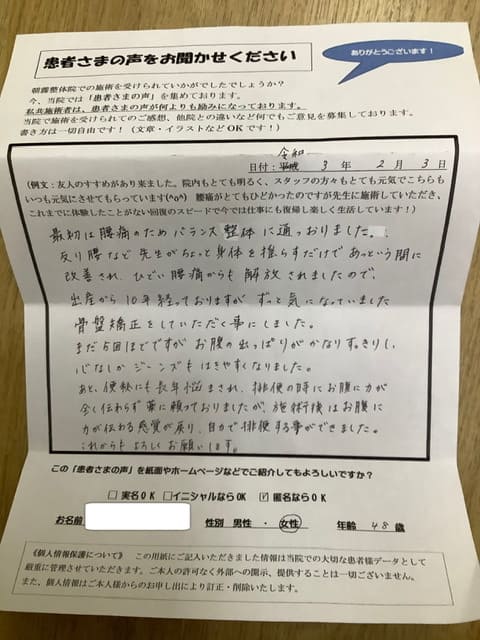 患者さまの声をお聞かせください
ありがとうございます！
朝霧整体院での施術を受けられていかがでしたでしょうか？
今、当院では「患者さまの声」を集めております。
私共施術者は、患者さまの声が何よりも励みになっております。
当院で施術を受けられてのご感想、他院との違いなど何でもご意見を募集しております。
書き方は一切自由です！（文章・イラストなどOKです！）
令和
日付：平成 3 年 2 月 3 日
（例文：友人のすすめがあり来ました。院内もとても明るく、スタッフの方々もとても元気でこちらも
いつも元気にさせてもらっています(^o^) 腰痛がとてもひどかったのですが先生に施術していただき、
これまでに体験したことがない回復のスピードで今では仕事にも復帰し楽しく生活しています！）
最初は腰痛のためバランス整体に通っおりました。
反り腰など先生がちょっと身体を揺らすだけであっという間に
改善され、ひどい腰痛からも解放されましたので、
出産から10年経っておりますがずっと気になっていました
骨盤矯正をしていただく事にしました。
まだ5回ほどですがお腹の出っぱりがかなりすっきりし、
心なしかジーンズもはきやすくなりました。
あと、便秘にも長年悩まされ、排便の時にお腹に力が
全く伝わらず薬に頼っておりましたが、施術後はお腹に
力が伝わる感覚が戻り、自力で排便する事ができました。
これからもよろしくお願いします。
この「患者さまの声」を紙面やホームページなどでご紹介してもよろしいですか？
□ 実名OK □イニシャルならOK ☑ 匿名ならOK
お名前 性別 男性 ・ 女性 年齢 48 歳
《個人情報保護について》 この用紙にご記入いただきました情報は当院での大切な患者様データとして
厳重に管理させていただきます。ご本人の許可なく外部への開示、提供することは一切ございません。
また、個人情報はご本人様からのお申し出により訂正・削除いたします。